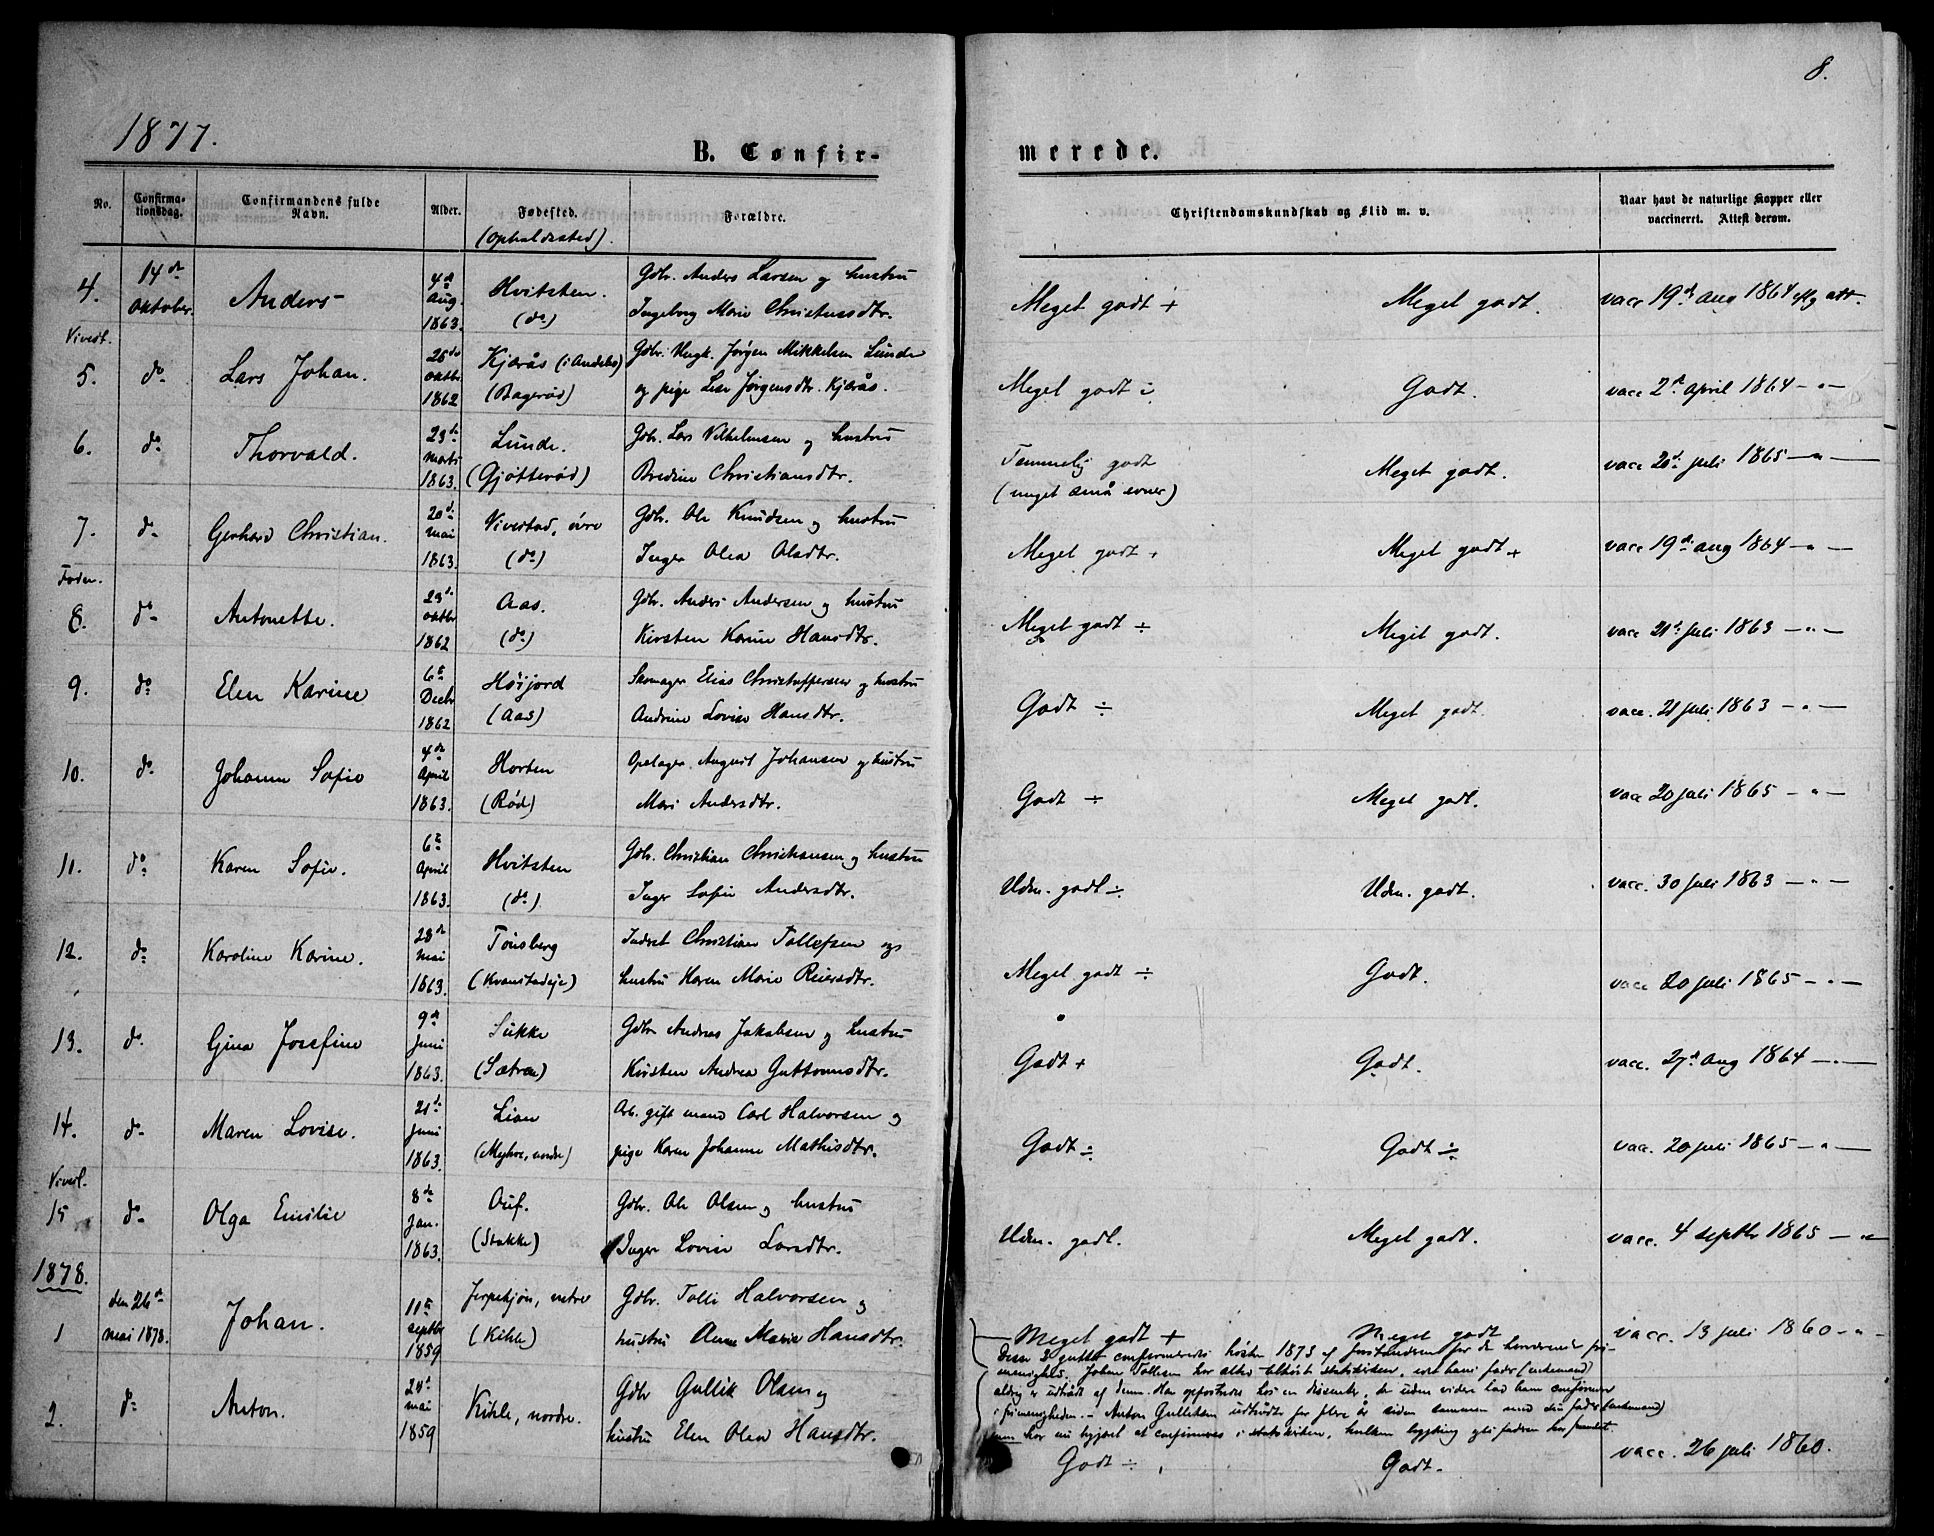 8.
1877.
B. Confir-
merede.
No.
Confirma-
tionsdag.
Confirmandens fulde
Navn.
Alder.
Fødested.
(Opholdssted).
Forældre.
Christendomskundskab og Flid m. v.
Naar havt de naturlige Kopper eller
vaccineret. Attest derom.
4. 14de oktober Anders 4de aug. 1863. Hvitsten. (do) Gdbr. Anders Larsen og hustru Ingeborg Marie Christensdtr. Meget godt + Meget godt. vacc 19de aug 1864 att.
Vivest.
5. do Lars Johan. 26de oktbr 1862 Kjærås (i Andebo) (Bagerød) Gdbr. Ungk. Jørgen Mikkelsen Lunde og pige Lise Jørgensdtr. Kjærås. Meget godt ÷ Godt. vacc 2de april 1864 — " —
6. do Thorvald. 23de marts 1863. Lunde. (Gjøtterød) Gdbr. Lars Vilhelmsen og hustru Bredine Christiansdtr. Temmelig godt (meget små evner) Meget godt. vacc 20de juli 1865 — " —
7. do Gerhard Christian. 20de mai 1863. Vivestad, øvre (do) Gdbr. Ole Knudsen og hustru Inger Olea Olsdtr. Meget godt + Meget godt + vacc 19de aug 1864 — " —
Foden.
8. do Antonette. 23de oktbr 1862 Aas. (do) Gdbr. Anders Andersen og hustru Kirsten Karine Hansdtr. Meget godt ÷ Meget godt. vacc 21de juli 1863 — " —
9. do Elen Karine 6te Decbr 1862 Høijord (Aas) Elias Christoffersen og hustru Andrine Lovise Hansdtr. Godt ÷ Meget godt. vacc. 21 juli 1863 — " —
10. do Johanne Sofie 4de April 1863. Horten (Rød) Opslager August Johansen og hustru Mari Andersdtr. Godt ÷ Meget godt. vacc 20 juli 1865 — " —
11. do Karen Sofie. 6te April 1863. Hvitsten (do) Gdbr. Christian Christiansen og hustru Inger Sofie Andersdtr. Udm. godt ÷ Udm. godt. vacc. 30 juli 1863 — " —
12. do Karoline Karine. 28de mai 1863. Tønsberg (Kvanstadeje) Inderst Christian Tollefsen og hustru Karen Marie Reiersdtr. Meget godt ÷ Godt. vacc 20 juli 1865 — " —
13. do Gina Josefine 9de juni 1863. Sukke (Sætran) Gdbr Andreas Jakobsen og hustru Kirsten Andrea Guttormsdtr. Godt + Godt. vacc. 27de aug 1864 — " —
14. do Maren Lovise. 21de juni 1863. Lian (Myhre, nordre) Arb. gift mand Carl Halvorsen og pige Karen Johanne Mathisdtr. Godt ÷ Godt ÷ vacc. 20 juli 1865 — " —
Vivest.
15 do Olga Emilie 8de jan. 1863. Auf. (Stokke) Gdbr. Ole Olsen og hustru Inger Lovise Larsdtr. Udm. godt. Meget godt. vacc. 4 septbr 1865 — " —
1878.
1 den 26de mai 1878. Johan. 11te septbr 1859 Jerpekjøn, nedre (Kihle) Gdbr. Tolli Halvorsen og hustru Anne Marie Hansdtr. Meget godt + Meget godt vacc. 13 juli 1860 — " —
Disse 2 gutter confirmeredes høsten 1873 af forstanderen for den herværende fri-
menighed. Johan Tollesen har altid tilhørt statskirken, idet hans fader (enkemand)
aldrig er udtrådt af denne. Han opfostredes hos en dissenter, der uden videre lod ham confirmere
i frimenigheden. — Anton Gulliksen udtrådte for flere år siden sammen med sin fader (enkemand)
som har nu begjært at confirmeres i statskirken, hvilken faderen har
2. do Anton. 24de mai 1859 Kihle, nordre. Gdbr Gullik Olsen og hustru Elen Olea Hansdtr. Godt ÷ Godt. vacc. 26 juli 1860.